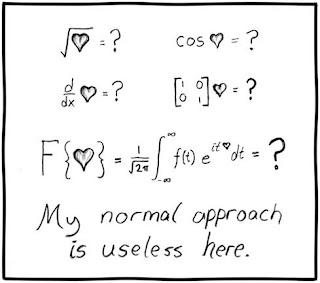 √♥ = ? cos ♥ = ?
d/dx ♥ = ? [1 0; 0 1] ♥ = ?
F{♥} = 1/√2π ∫_-∞^∞ f(t) e^it♥ dt = ?
My normal approach
is useless here.